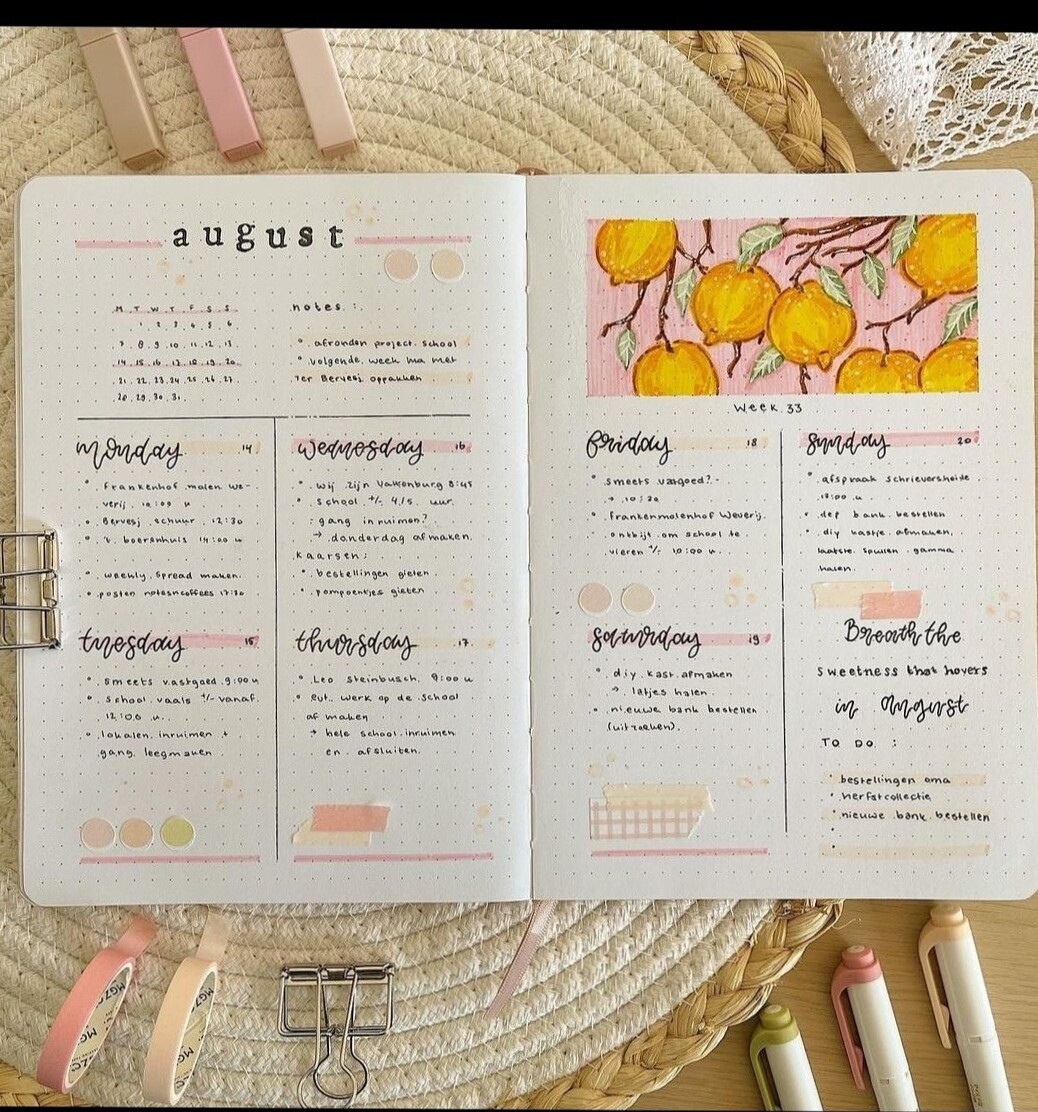 august
M T W T F S S
1 2 3 4 5 6
7 8 9 10 11 12 13
14 15 16 17 18 19 20
21 22 23 24 25 26 27
28 29 30 31
notes :
afronden project school
volgende week ma met
Ter Bervesj oppakken
monday 14
Frankenhof malen we-
verij
Bervesj schuur 12:30
't boerenhuis 14:00 u
weekly spread maken.
posten notesncoffees 17:30
tuesday 15
smeets vastgoed 9:00 u
school vaals +/- vanaf
12:00 u.
lokalen inruimen +
gang leegmaken
wednesday 16
wij zijn Valkenburg 8:45
school +/- 4/5 uur
gang inruimen?
→ donderdag afmaken.
kaarsen:
bestellingen gieten
pompoentjes gieten
thursday 17
Leo Steinbusch. 9:00 u
evt. werk op de school
af maken
→ hele school inruimen
en afsluiten.
Week 33
friday 18
smeets vasgoed? -
→ 10:30
Frankenmolenhof Weverij.
ontbijt om school te
vieren +/- 10:00 u.
saturday 19
diy kast afmaken
→ latjes halen
nieuwe bank bestellen
(uitzoeken).
sunday 20
afspraak schrieversheide
18:00 u
dep bank bestellen
diy kastje afmaken,
laatste spullen gamma
halen.
Breath the
sweetness that hovers
in august
TO DO :
bestellingen oma
herfstcollectie
nieuwe bank bestellen